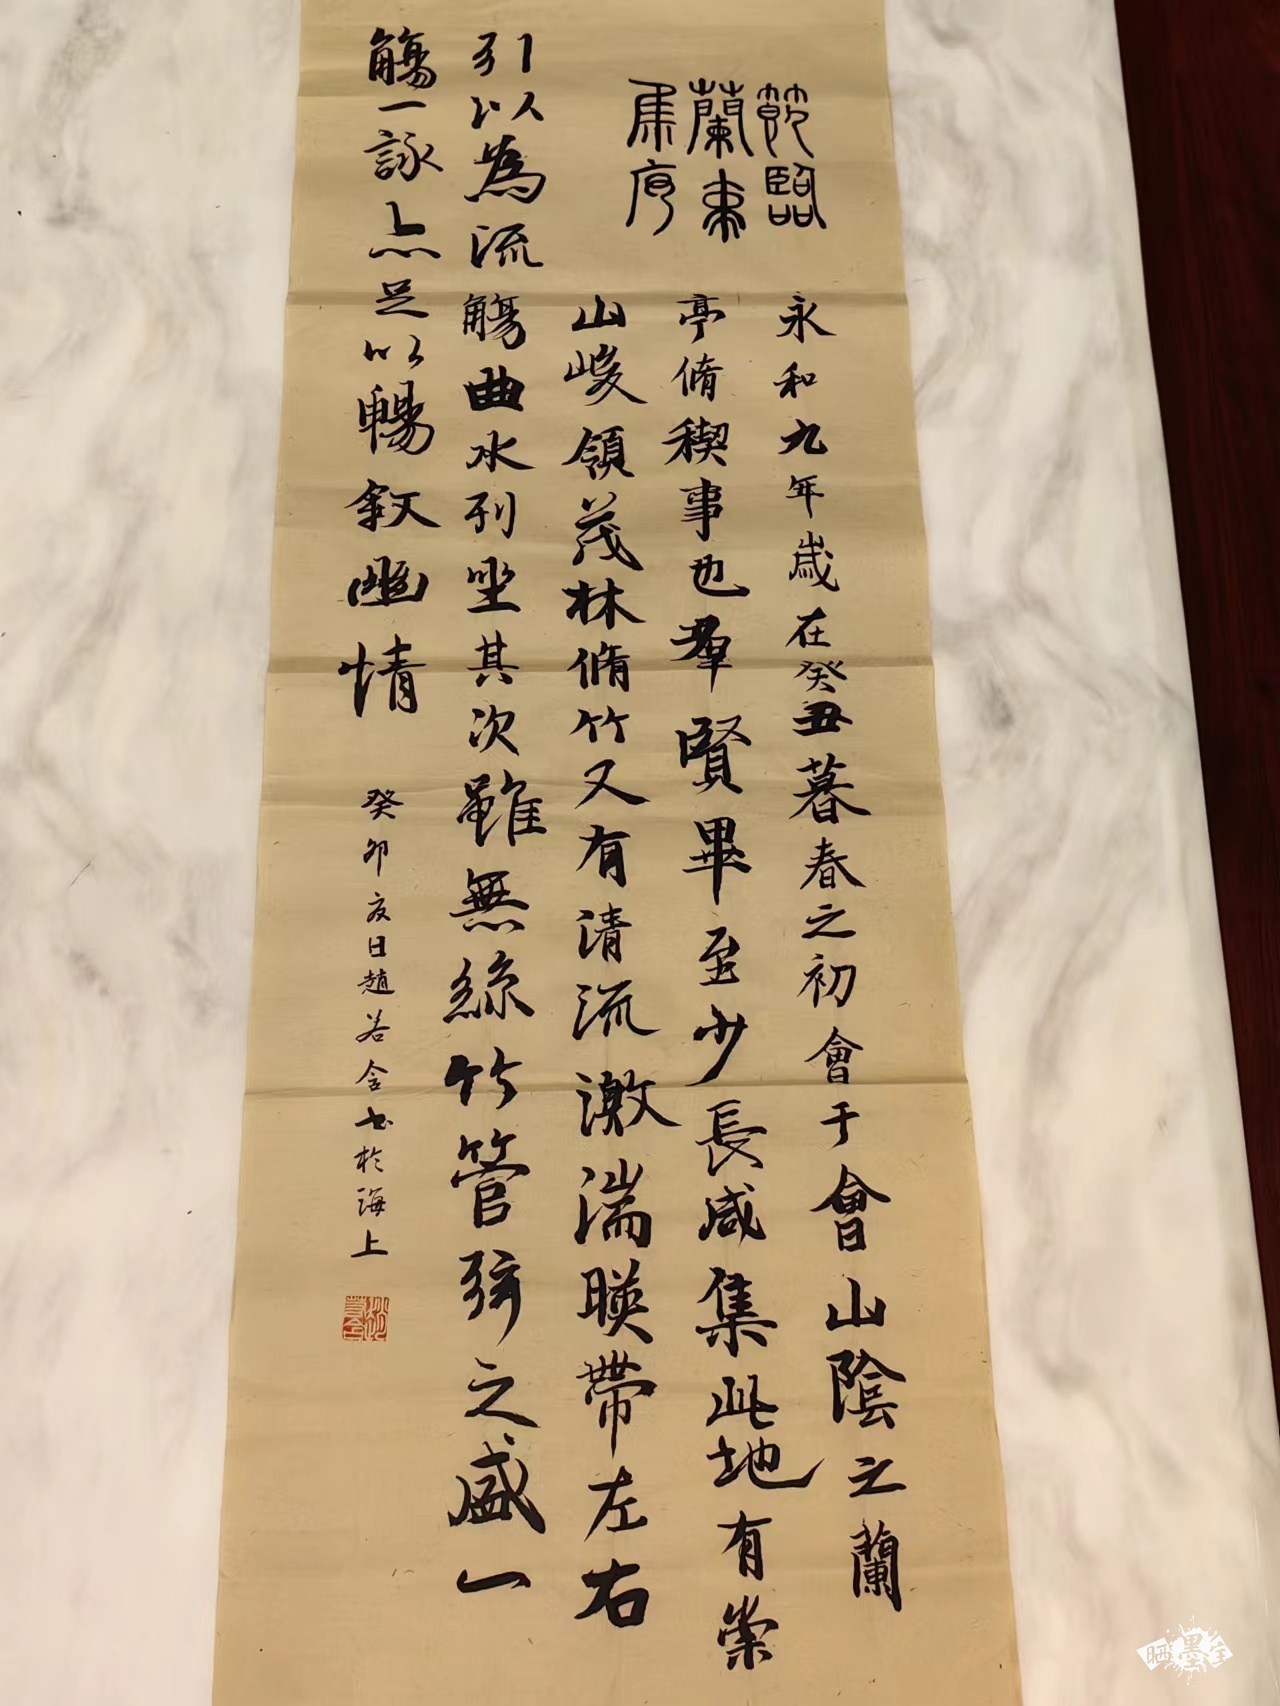 節臨
蘭亭
集序
永和九年歲在癸丑暮春之初會于會山陰之蘭
亭脩稧事也羣賢畢至少長咸集此地有崇
山峻領茂林脩竹又有清流激湍暎帶左右
引以為流觴曲水列坐其次雖無絲竹管弦之盛一
觴一詠亦足以暢敘幽情
癸卯亥日趙若含書於海上
晒墨宝